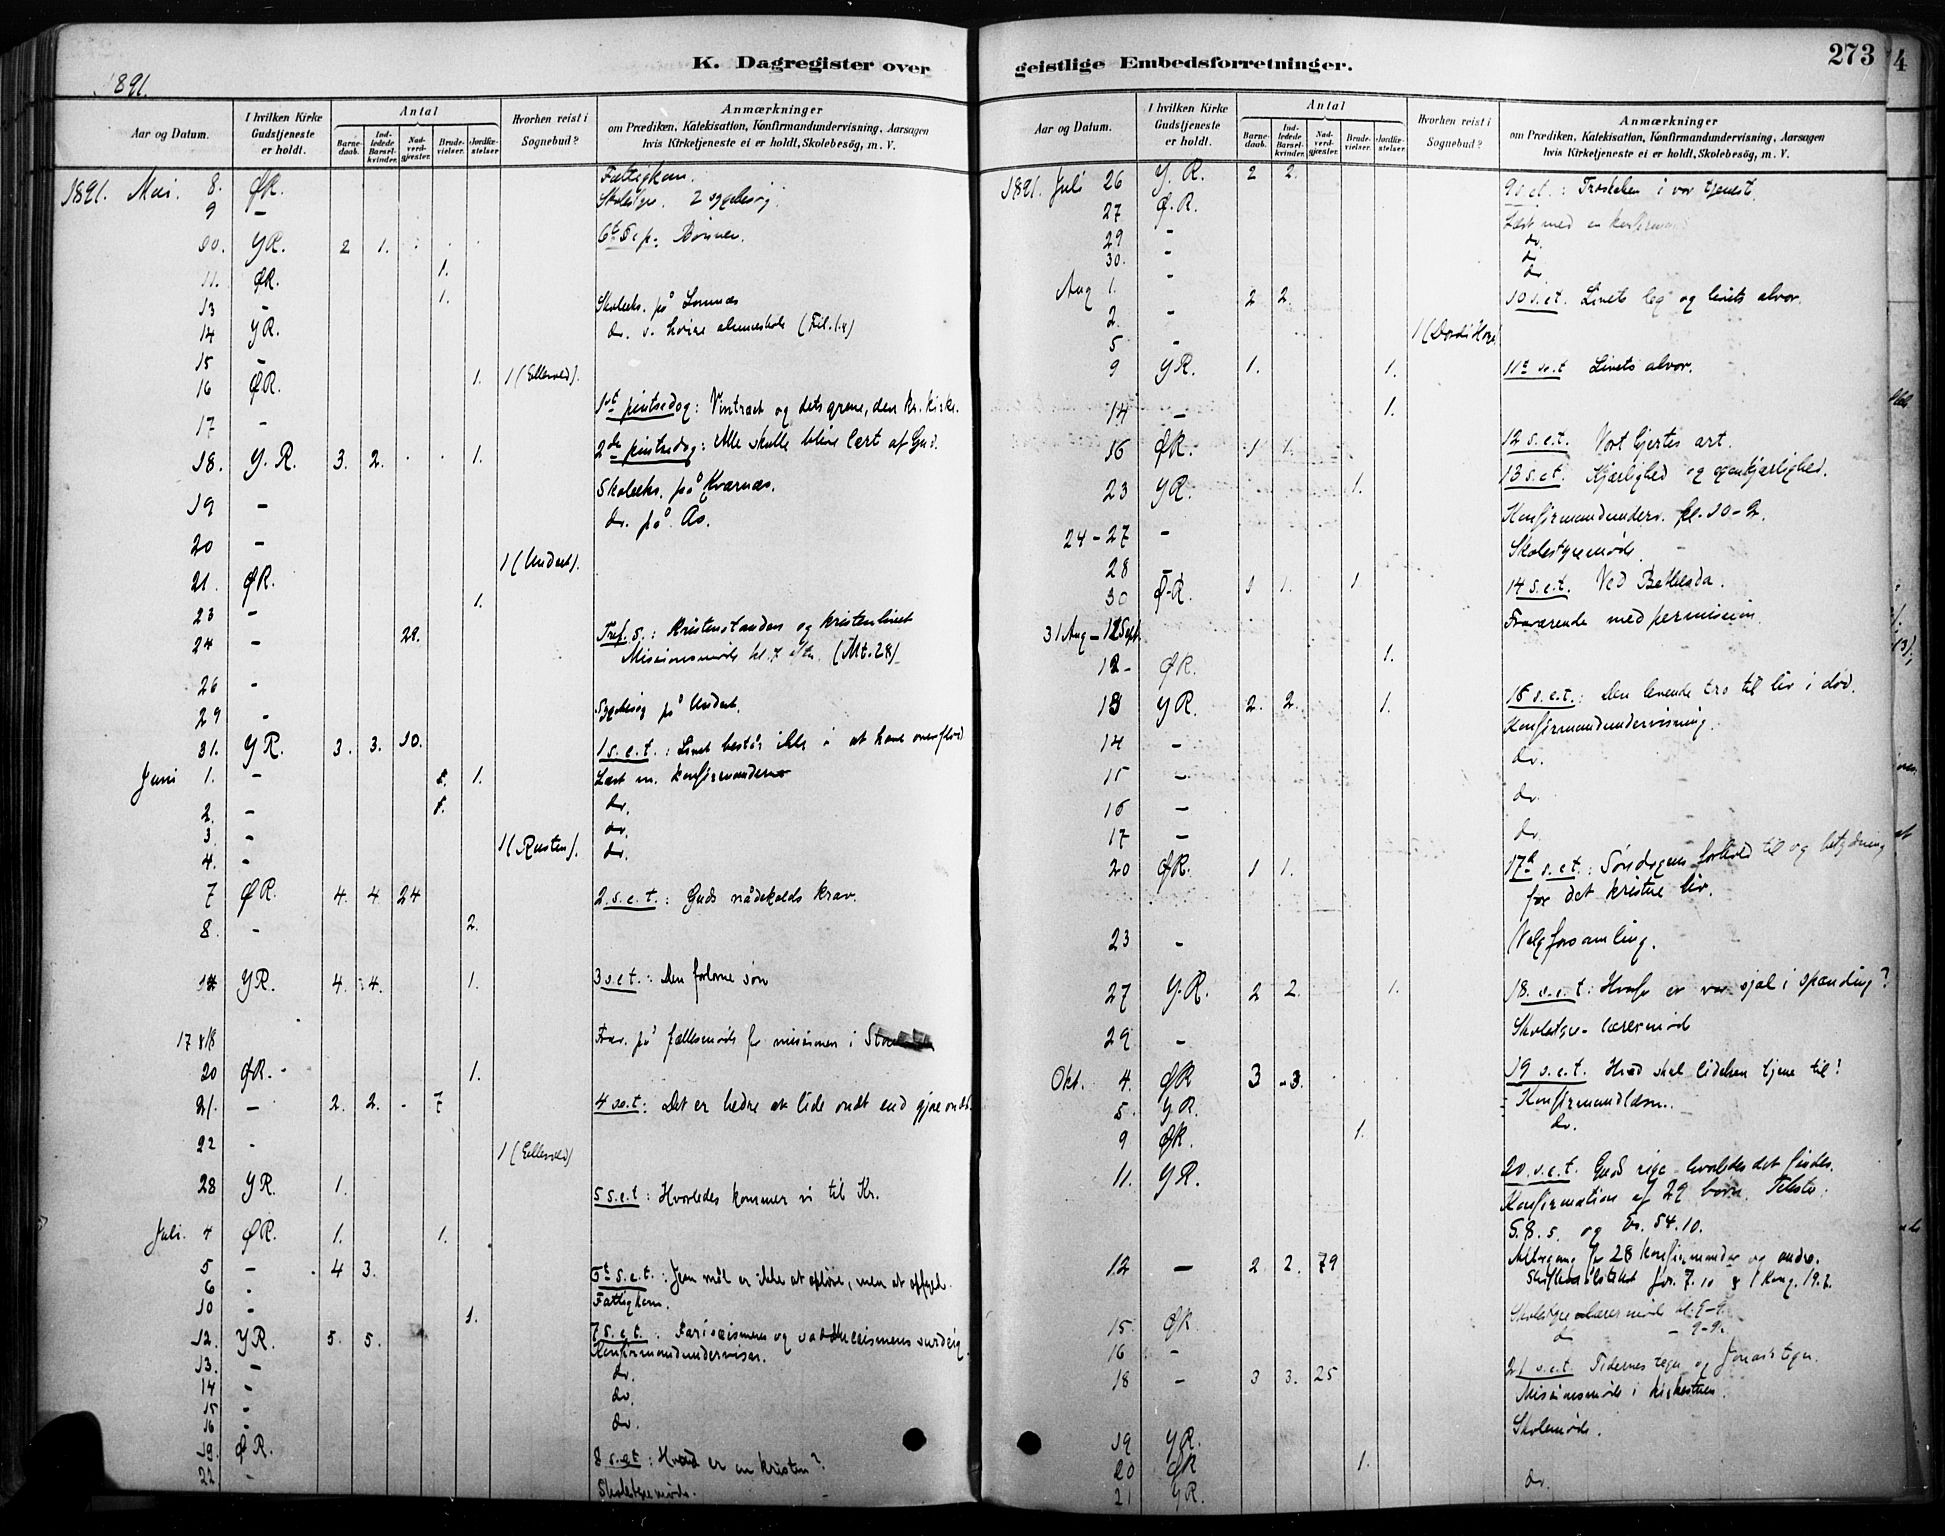 K. Dagregister over
1891.
Aar og Datum.
I hvilken Kirke Gudstjeneste er holdt.
Antal
Barnedaab.
Indledede Barselkvinder.
Nadverdgjester.
Brudevielser.
Jordfæstelser
Hvorhen reist i Sognebud?
Anmærkninger
om Prædiken, Katekisation, Konfirmandundervisning, Aarsagen
hvis Kirketjeneste ei er holdt, Skolebesög, m. V.
1891. Mai. 8. ØR. Fattigkom.
9 - 2 sygebesög.
10. YR. 2 1.
11. ØR. 1.
13 - 1. på
14 YR. do.
15 -
16 ØR. 1. 1 (Ellevold).
17 - 1st pintsedag: Vintræet og dets grene, den kr. kirke.
18. Y.R. 3. 2. 1. 2den pintsedag: Alle skulle blive lært af Gud.
19 - Skoleeks. på Kværnæs.
20 - do. på Ås.
21. ØR. 1 (Undset).
23 - 1.
24 - 29. Tref. s.: Kristenstanden og kristenlivet
Missionsmøde kl. 7 (Mt. 28)
26 -
29 - Sygebesög på Undset.
31. YR. 3. 3. 10. 1 s.e.t.: Livet består ikke i at have overflod
Juni 1. - 1. Læst m. konfirmanderne
2. - do.
3. - do.
4. - 1 (Rusten). do.
7 ØR. 4. 4. 24 2. s.e.t.: Guds nådekalds krav.
8. - 2.
14 YR. 4. 4. 1. 3 s.e.t.: Den forlorne søn
17 & 18 Frav. på fællesmøde for missionen i
20 ØR. 1.
21. - 2. 2. 7 4 s.e.t.: Det er bedre at lide ondt end gjøre ondt.
22 - 1 (Ellevold)
28 YR. 1. 5 s.e.t: Hvorledes kommer vi til Kr.
Juli. 4 ØR. 1. 1.
5 - 4 3. 6t s.e.t.: mål er ikke at opløse, men at opfyld.
6 . Fattigkom.
10 - 1.
12. YR. 5. 5. 7 s.e.t. Farisæismens og saddukæismens surdeig.
13. - Konfirmandundervisn.
14 - do.
15 - do.
16 - do.
19. ØR. 8 s.e.t: Hvad er en kristen?
22 - Skolestyremøde.
geistlige Embedsforretninger.
273
Aar og Datum.
I hvilken Kirke Gudstjeneste er holdt.
Antal
Barnedaab.
Indledede Barselkvinder.
Nadverdgjester.
Brudevielser.
Jordfæstelser
Hvorhen reist i Sognebud?
Anmærkninger
om Prædiken, Katekisation, Konfirmandundervisning, Aarsagen
hvis Kirketjeneste ei er holdt, Skolebesög, m. V.
1891. Juli 26 Y.R. 2 2. 9 s.e.t.: Troskaben i vor tjenest.
27 Ø.R. Læst med en konfirmand
29 - do.
30. - do.
Aug 1. - do.
2. - 2 2. 10 s.e.t. Livets leg og livets alvor.
5 -
9 YR. 1. 1. 11te s.e.t Livets alvor.
14 - 1.
16 ØR. 1 1. 12 s.e.t. Vort hjertes art.
23 YR. 1. 13 s.e.t. Kjærlighed og egenkjærlighed.
24 - 27 - Konfirmandunderv. kl. 10 - 2.
28 - Skolestyremøde.
30 Ø.R. 1 1. 1. 14 s.e.t. Ved Bethesda.
31 Aug - Sept. Fraværende med permission
12 - ØR. 1.
13 YR. 2. 2. 1. 16 s.e.t.: Den levende tro til liv i død.
14 - Konfirmandundervisning.
15 - do.
16 - do.
17 - do.
20 ØR. 1 1. 17de s.e.t.: Søndagens forhold til og betydning
for det kristne liv.
23 - Valgforsamling.
27 Y.R. 2 2. 1. 18. s.e.t: Hvorfor er vor sjæl i spænding?
29 - Skolestyre- lærermøde
Okt. 4. ØR 3 3. 19 s.e.t. Hvad skal lidelsen tjene til?
5. YR. Konfirmandlæsn.
9 ØR. 1. do.
11. YR. 20. s.e.t. Guds rige
Konfirmation af 29 børn. Tekster:
S. 8. 5. og Es. 54. 10.
12 - 2. 2. 79 Altergang for 28 konfirmander og andre.
1 Kong. 19.7.
15. ØR Skolestyre - lærermøde
16 - do
18 - 3 3. 25 21 s.e.t. Tidernes tegn og Jonas's tegn.
Missionsmøde i
19 YR. Skolemøde.
20 ØR 1.
21 YR. do.